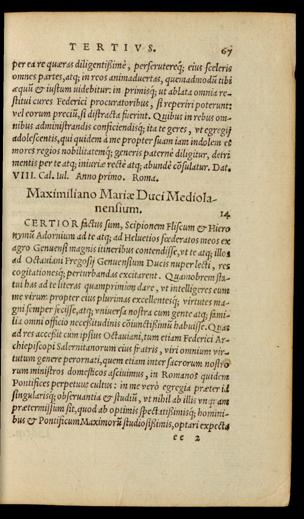 TERTIVS. 67
per ea re quæras diligentißimè, perscruterеq́; eius sceleris
omnes partes, atq́; in reos animaduertas, quemadmodũ tibi
æquũ & iustum uidebitur: in primisq́; ut ablata omnia re-
stitui cures Federici procuratoribus, si reperiri poterunt:
vel eorum preciũ, si distracta fuerint. Quibus in rebus om-
nibus administrandis conficiendisq́; ita te geres, vt egregij
adolescentis, qui quidem à me propter suam iam indolem et
mores regios nobilitatemq́; generis paternè diligitur, detri
menti per te atq́; iniuriæ rectè atq́; abundè cõsulatur. Dat.
VIII. Cal. Iul. Anno primo. Roma.
Maximiliano Mariæ Duci Mediola-
nensium. 14
CERTIOR factus sum, Scipionem Fliscum & Hiero
nymũ Adornium ad te atq́; ad Heluetios fœderatos meos ex
agro Genuensi magnis itineribus contendisse, vt te atq́; illos
ad Octauiani Fregosij Genuensium Ducis nuper lecti, res
cogitationesq́; perturbandas excitarent. Quamobrem sta-
tui has ad te literas quamprimùm dare, vt intelligeres cum
me virum propter eius plurimas excellentesq́; virtutes ma-
gni semper fecisse, atq́; vniuersa nostra cum gente atq́; fami-
lia omni officio neceßitudinis cõiunctißimũ habuisse. Quas
ad res acceßit cùm ipsius Octauiani, tum etiam Federici Ar-
chiepiscopi Salernitanorum eius fratris, viri omnium vir-
tutum genere perornati, quem etiam inter sacrorum nostro
rum ministros domesticos asciuimus, in Romanos quidem
Pontifices perpetuus cultus: in me verò egregia præter id
singularisq́; obseruantia & studiũ, vt nihil ab illis vnquam
prætermissum sit, quod ab optimis spectatißimisq́; homini-
bus & Pontificum Maximorũ studiosißimis, optari expecta
cc 2